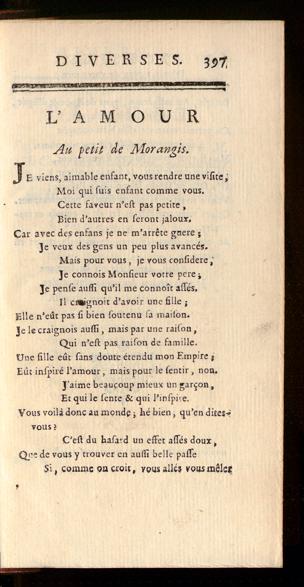 DIVERSES. 397
L'AMOUR
Au petit de Morangis.
JE viens, aimable enfant, vous rendre une visite,
Moi qui suis enfant comme vous.
Cette faveur n'est pas petite,
Bien d'autres en seront jaloux.
Car avec des enfans je ne m'arrête guere;
Je veux des gens un peu plus avancés.
Mais pour vous, je vous considere,
Je connois Monsieur votre pere;
Je pense aussi qu'il me connoît assés.
Il craignoit d'avoir une fille;
Elle n'eût pas si bien soutenu sa maison.
Je le craignois aussi, mais par une raison,
Qui n'est pas raison de famille.
Une fille eût sans doute étendu mon Empire;
Eût inspiré l'amour, mais pour le sentir, non.
J'aime beaucoup mieux un garçon,
Et qui le sente & qui l'inspire.
Vous voilà donc au monde; hé bien, qu'en dites-
vous?
C'est du hasard un effet assés doux,
Que de vous y trouver en aussi belle passe
Si, comme on croit, vous allés vous mêler